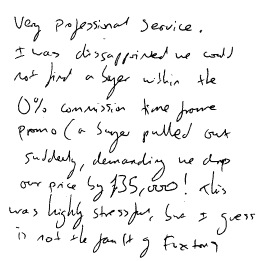 Very professional service.
I was dissappointed we could
not find a buyer within the
0% commission time frame
promo (a buyer pulled out
suddenly, demanding we drop
our price by $35,000! This
was highly stressful, but I guess
is not the fault of Foxtons